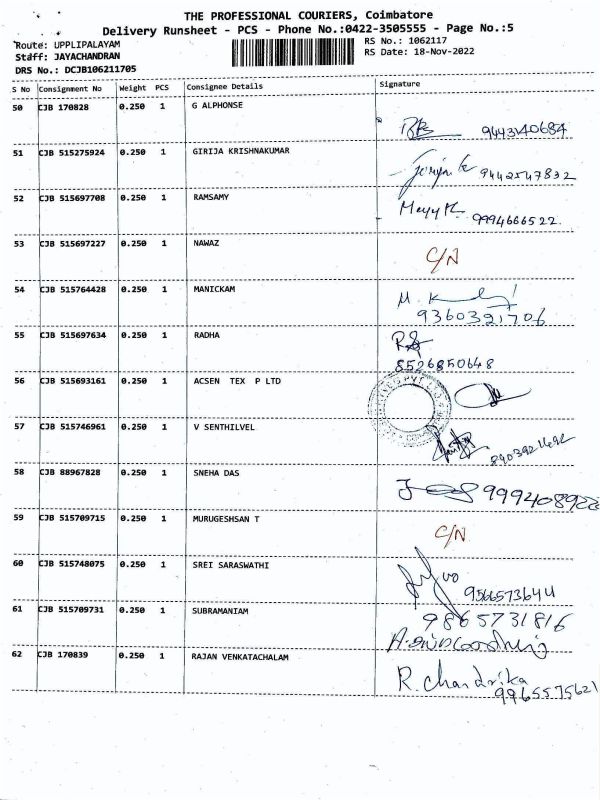 THE PROFESSIONAL COURIERS, Coimbatore
Delivery Runsheet - PCS - Phone No.:0422-3505555 - Page No.:5
Route: UPPLIPALAYAM
RS No.: 1062117
Staff: JAYACHANDRAN
RS Date: 18-Nov-2022
DRS No.: DCJB106211705
S No Consignment No Weight PCS Consignee Details Signature
50 CJB 170828 0.250 1 G ALPHONSE
9443140684
51 CJB 515275924 0.250 1 GIRIJA KRISHNAKUMAR
9442547832
52 CJB 515697708 0.250 1 RAMSAMY
9994666522.
53 CJB 515697227 0.250 1 NAWAZ
C/N
54 CJB 515764428 0.250 1 MANICKAM
9360321706
55 CJB 515697634 0.250 1 RADHA
8526850648
56 CJB 515693161 0.250 1 ACSEN TEX P LTD
57 CJB 515746961 0.250 1 V SENTHILVEL
58 CJB 88967828 0.250 1 SNEHA DAS
999408922
59 CJB 515709715 0.250 1 MURUGESHSAN T
C/N
60 CJB 515748075 0.250 1 SREI SARASWATHI
9566573644
61 CJB 515709731 0.250 1 SUBRAMANIAM
9865731816
62 CJB 170839 0.250 1 RAJAN VENKATACHALAM
R. Chandrika
9965575621